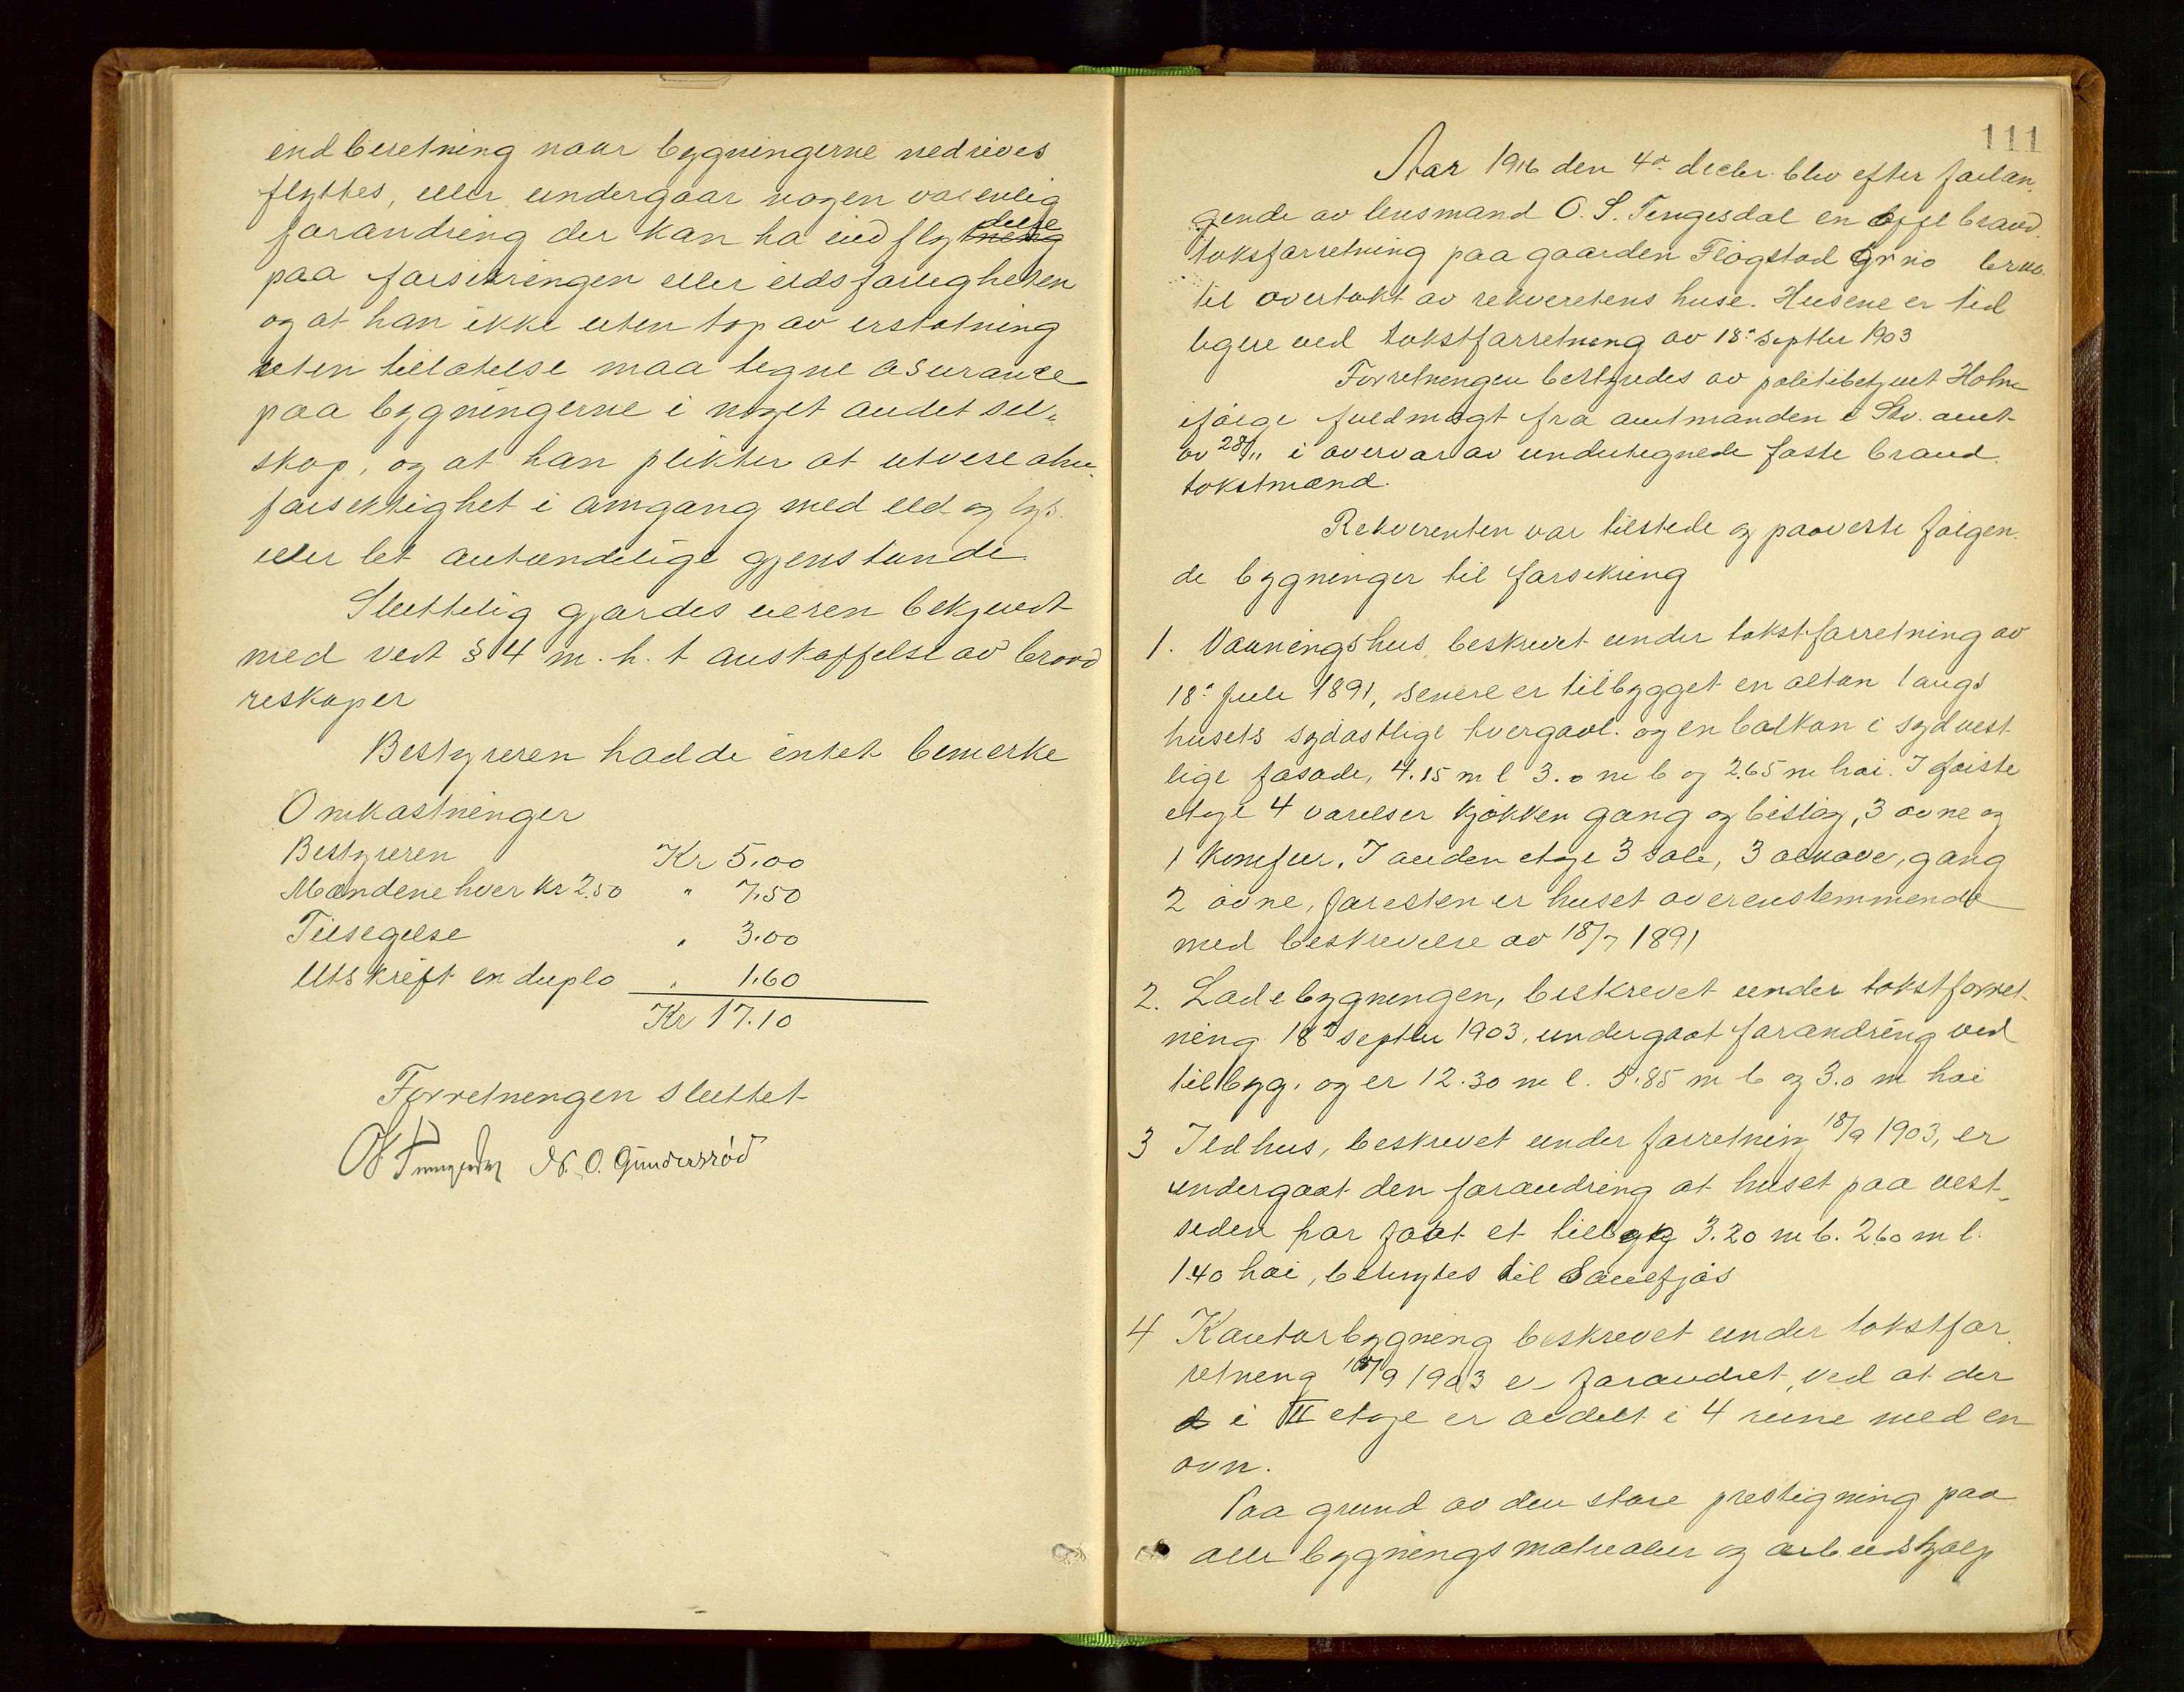 endberetning naar bygningerne nedrives
flyttes, eller undergaar nogen væsenlig
forandring der kan ha indflytning delse
paa forsikringen eller ildsfarligheten
og at han ikke uten tap av erstatning
uten tillatelse maa tegne asurance
paa bygningerne i noget andet sel-
skap, og at han plikter at utvise alm.
forsiktighet i omgang med ild og lys
eller let antændelige gjenstande
Sluttelig gjordes eieren bekjendt
med vedt § 14 m. h. t anskaffelse av brand
reskaper
Bestyreren hadde intet bemerke
Omkostninger
Bestyreren Kr 5.00
Mændene hver kr 2.50 " 7.50
Tilsigelse " 3.00
Utskrift in duplo " 1.60
Kr 17.10
Forretningen sluttet
N. O. Gundersrød
111
Aar 1916 den 4de decbr. blev efter forlan-
gende av lensmand O. S. Tengesdal en avh brand
takstforretning paa gaarden Fløgstad Gr no brno
til overtakt av rekvirentens huse. Husene er tid
ligere ved takstforretning av 18de septbr 1903
Forretningen bestyredes av politibetjent Holm
ifølge fuldmagt fra amtmanden i Stv. amt
av 28/11 i overvær av undertegnede faste brand
takstmænd.
Rekvirenten var tilstede og paaviste følgen-
de bygninger til forsikring
1. Vaaningshus, beskrevet under takstforretning av
18de Juli 1891, senere er tilbygget en altan langs
husets sydøstlige tvergavl. og en balkon i sydvest
lige fasade, 4.15 m l 3.0 m b og 2.65 m høi. I første
etage 4 værelser kjøkken gang og bislag, 3 ovne og
1 komfur, I anden etage 3 sale, 3 alkove, gang
2 ovne, foresten er huset overenstemmende
med beskrivelse av 18/7 1891
2. Ladebygningen, beskrevet under takstforret-
ning 18de septbr 1903, undergaat forandring ved
tilbyg. og er 12.30 m l. 5.85 m b og 3.0 m høi
3 Ildhus, beskrevet under forretning 18/9 1903, er
undergaat den forandring at huset paa vest-
siden har faat et tilbyg 3.20 m b. 2.60 m l.
1.40 høi, benyttes til Sauefjøs
4 Kontorbygning beskrevet under takstfor
retning 18/9 1903 er forandret, ved at der
i II etage er avdelt i 4 rum med en
ovn.
Paa grund av den store prisstigning paa
alle bygningsmaterialier og arbeidshjælp